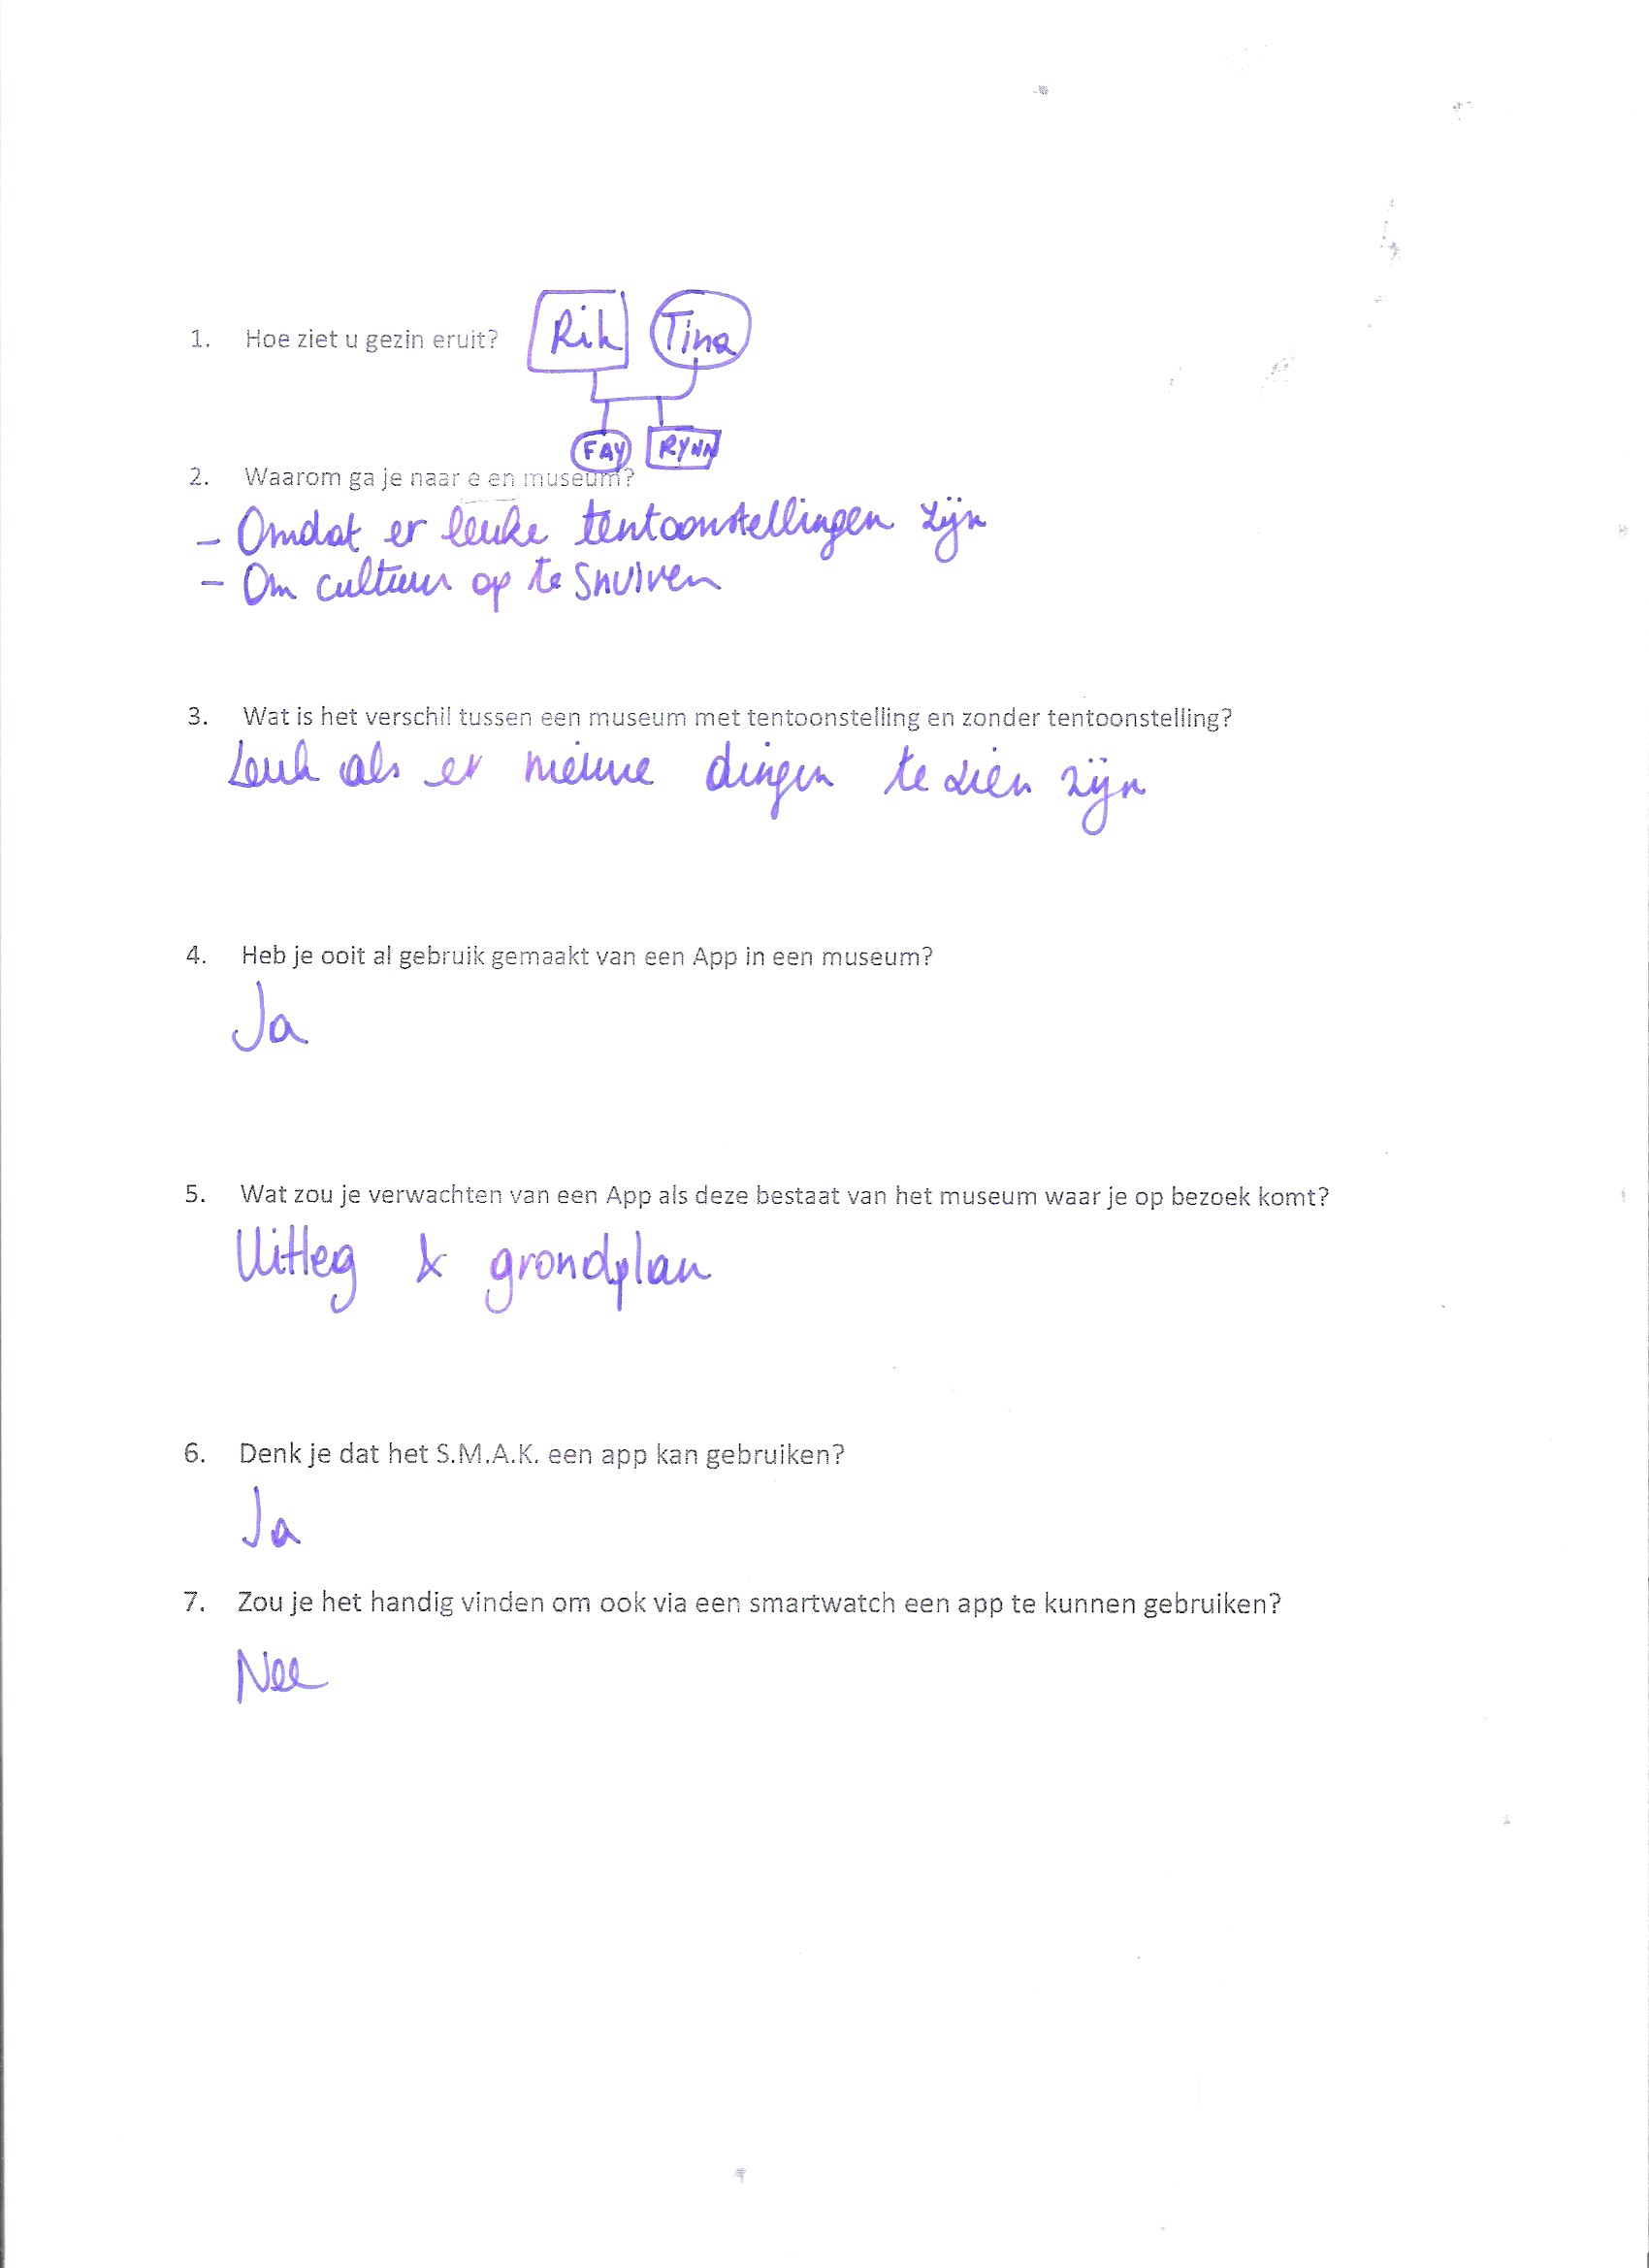 1. Hoe ziet u gezin eruit? Rik Tina
FAY RYNN
2. Waarom ga je naar e en museum?
- Omdat er leuke tentoonstellingen zijn
- Om cultuur op te snuiven
3. Wat is het verschil tussen een museum met tentoonstelling en zonder tentoonstelling?
Leuk als er nieuwe dingen te zien zijn
4. Heb je ooit al gebruik gemaakt van een App in een museum?
Ja
5. Wat zou je verwachten van een App als deze bestaat van het museum waar je op bezoek komt?
Uitleg & grondplan
6. Denk je dat het S.M.A.K. een app kan gebruiken?
Ja
7. Zou je het handig vinden om ook via een smartwatch een app te kunnen gebruiken?
Nee